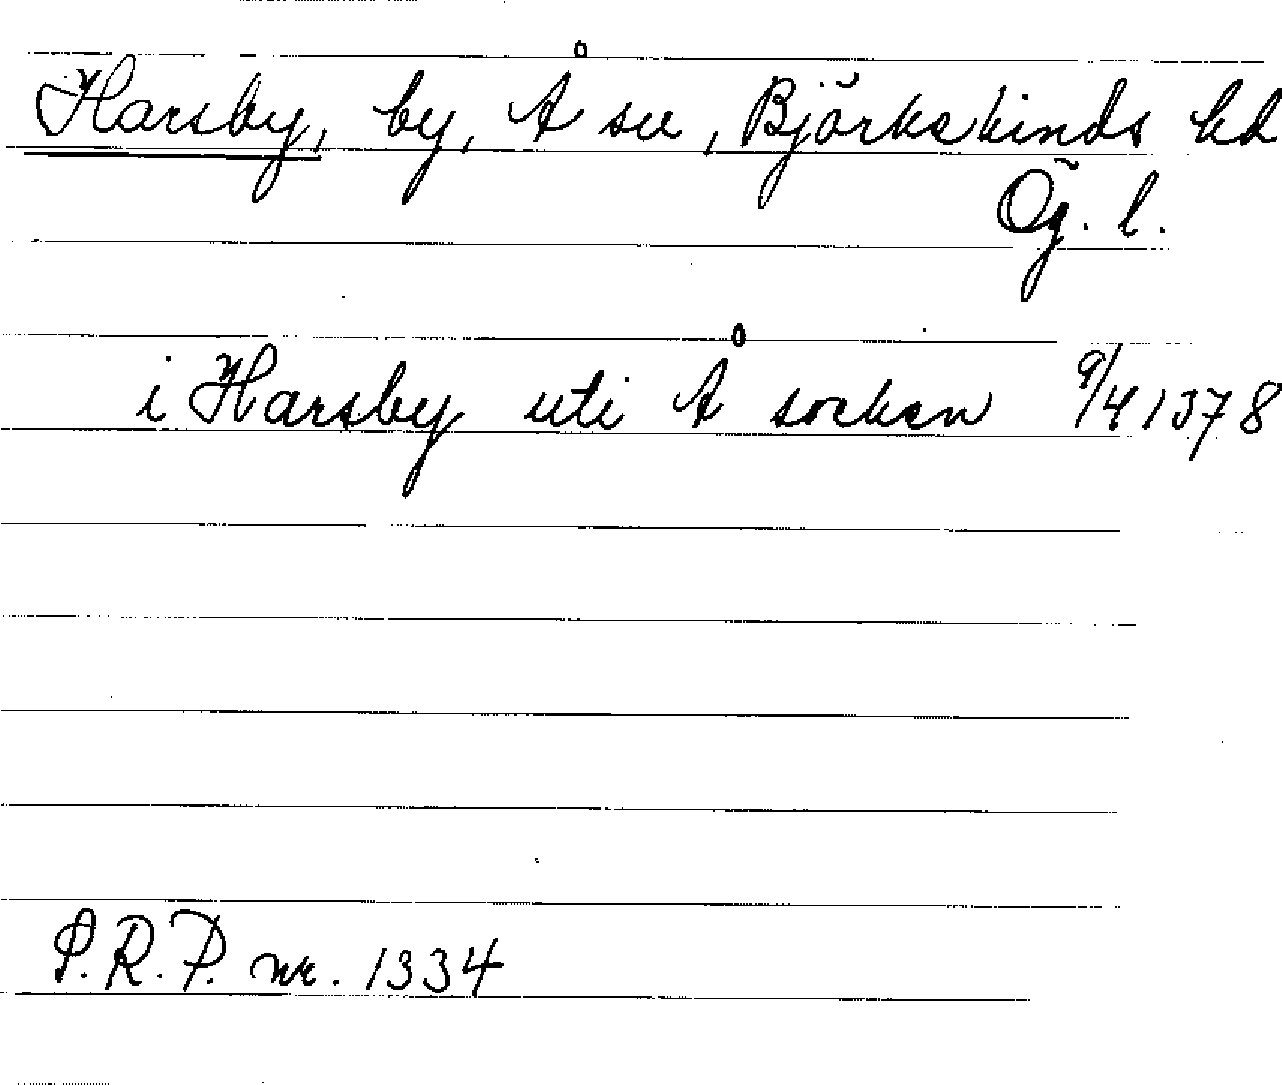 Harsby, by, Å sn, Björkekinds hd
Ög. l.
i Harsby uti Å socken 9/4 1378
S.R.P. nr. 1334